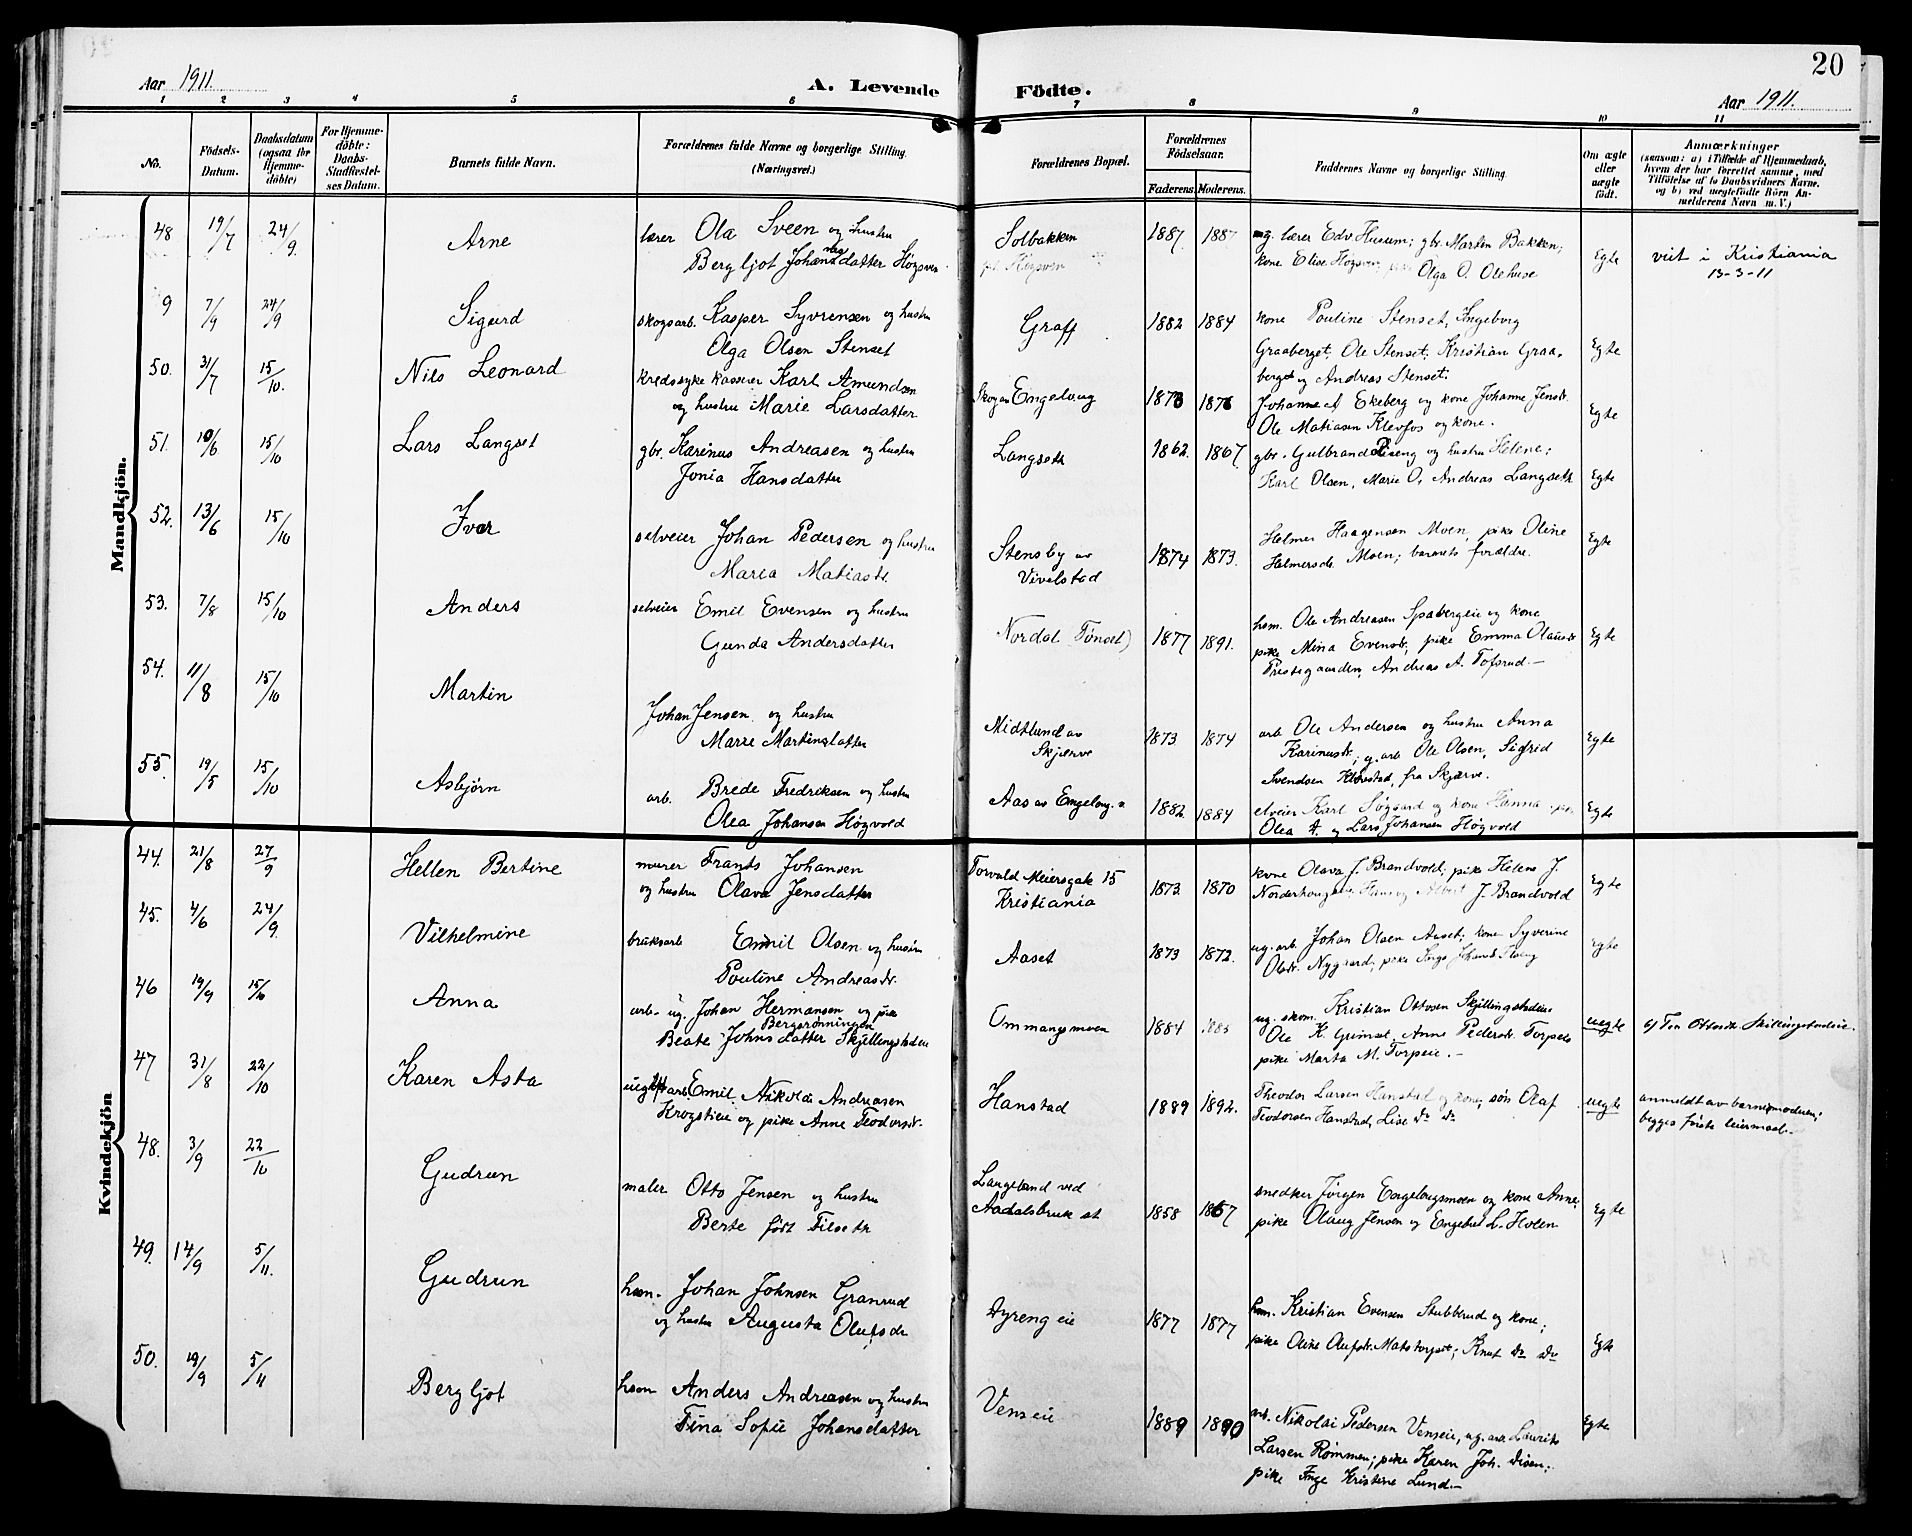 Aar 1911. A. Levende Födte. Aar 1911. 20
1 2 3 4 5 6 7 8 9 10 11
No. Födsels-Datum. Daabsdatum (ogsaa for Hjemme-döbte) For Hjemme-döbte: Daabs-Stadfæstel-ses Datum. Barnets fulde Navn. Forældrenes fulde Navne og borgerlige Stilling. (Næringsvei.) Forældrenes Bopæl. Forældrenes Födselsaar. Faderens. Moderens. Faddernes Navne og borgerlige Stilling. Om ægte eller uægte födt. Anmærkninger (saasom: a) i Tilfælde af Hjemmedaab, hvem der har forrettet samme, med Tilföielse af to Daabsvidners Navne. og b) ved uegtefödte Börn An-melderens Navn m. V.)
Mandkjön.
48 19/7 24/9 Arne lærer Ola Sveen og hustru Solbakken 1887 1887 ug. lærer Edv Husum; gbr. Morten Bakken; Egte viet i Kristiania
Bergljot Johansdatter Högsven kone Elise Olga O. Olehuse 13-3-11
9 7/9 24/9 Sigurd skogsarb. Kasper Syvrensen og hustru Graff 1882 1884 kone Pouline Stenset, Ingeborg Egte
Olga Olsen Stenset Graaberget, Ole Stenset, Kristian Graa-
berget og Andreas Stenset.
50. 31/7 15/10. Nils Leonard kredssyke kasserer Karl Amundsen Engelaug 1876 Johanne Ekeberg og kone Johanne Jensdr. Egte
og hustru Marie Larsdatter Ole Matiasen Klevfos og kone.
51. 10/6 15/10 Lars Langset gbr. Karinus Andreasen og hustru Langseth 1862. 1867 gbr. Gulbrand og hustru Helene; Egte
Jonia Hansdatter Karl Olsen, Marie O, Andreas Langseth
52. 13/6 15/10 Ivar selveier Johan Pedersen og hustru Stensby av 1874 1873. Helmer Haagensen Moen, pike Oline Egte
Maria Matiasdr. Vivelstad Helmersdr. Moen; barnets forældre.
53. 7/8 15/10 Anders selveier Emil Evensen og hustru Nordal (Tønset) 1877 1891. hsm. Ole Andreasen Spabergeie og kone Egte
Gunda Andersdatter pike Mina Evensdr, pike Emma Olausdr
Prestegaarden, Andreas A. Tofsrud.-
54. 11/8 15/10 Martin Johan Jensen og hustru Midtlund av 1873 1874 arb Ole Andersen og hustru Anna Egte
Marie Martinsdatter Skjærve Karinusdr; g. arb Ole Olsen, Sigfrid
Svendsen Klövstad, fra Skjærve.
55. 19/5 15/10 Asbjörn arb. Brede Fredriksen og hustru Aas av Engelaug 1882 1884 Karl Søgaard og kone Hanna Egte
Olea Johansen Høgvold Olea A. og Lars Johansen Høgvold
Kvindekjön
44. 21/8 27/9 Hellen Bertine murer Frants Johansen Torvald Meiersgate 15 1873 1870 kone Olava J. Brandvold; pike Helene J. Egte
og hustru Olava Jensdatter Kristiania Albert J. Brandvold
45. 4/6 24/9. Vilhelmine bruksarb Emil Olsen og hustru Aaset 1873 1872. ug. arb. Johan Olsen Aaset; kone Syverine Egte
Pouline Andreasdr. Olsdr. Nygaard; pike Inga
46 19/9 15/10 Anna arb. ug. Johan Hermansen og pike Ommangsmoen 1884 ug. skom. Kristian Ottosen Skjillingstadeie uegte
Bergsrönningen Ole K. Grimset. Anne Pedersdr. Torpeie
Beate Johnsdatter Skjillingstadeie pike Marta M. Torpeie.-
47 31/8 22/10 Karen Asta arb. Emil Nikolai Andreasen Hanstad 1889 1892. Theodor Larsen Hanstad og kone, sön Olaf uegte anmeldt av barnemoderen;
Krogstieie og pike Anne Teodorsdr. Teodorsen Hanstad, Lise do do begges første leiermaal.-
48. 3/9 22/10 Gudrun maler Otto Jensen og hustru Langeland ved 1858 1867 snedker Jörgen Engelaugsmoen og kone Anne; Egte
Berte født Filseth Aadalsbruk st pike Olaug Jensen og Engebret L. Holen
49. 14/9 5/11. Gudrun hsm. Johan Johnsen Granrud Dyreng eie 1877 1877 hsm. Kristian Evensen Stubberud og kone; Egte
og hustru Augusta Olufsdr pike Oline Olufsdr. Matstorpet; Knut do do
50. 19/9 5/11 Bergljot hsm Anders Andreasen og hustru Venseie 1889 1890 arb. Nikolai Pedersen Venseie, ug. arb Laurits Egte
Tina Sofie Johansdatter Larsen Rømmen; pike Karen Joh. Disen;
pike Inge Kristine Lund.-